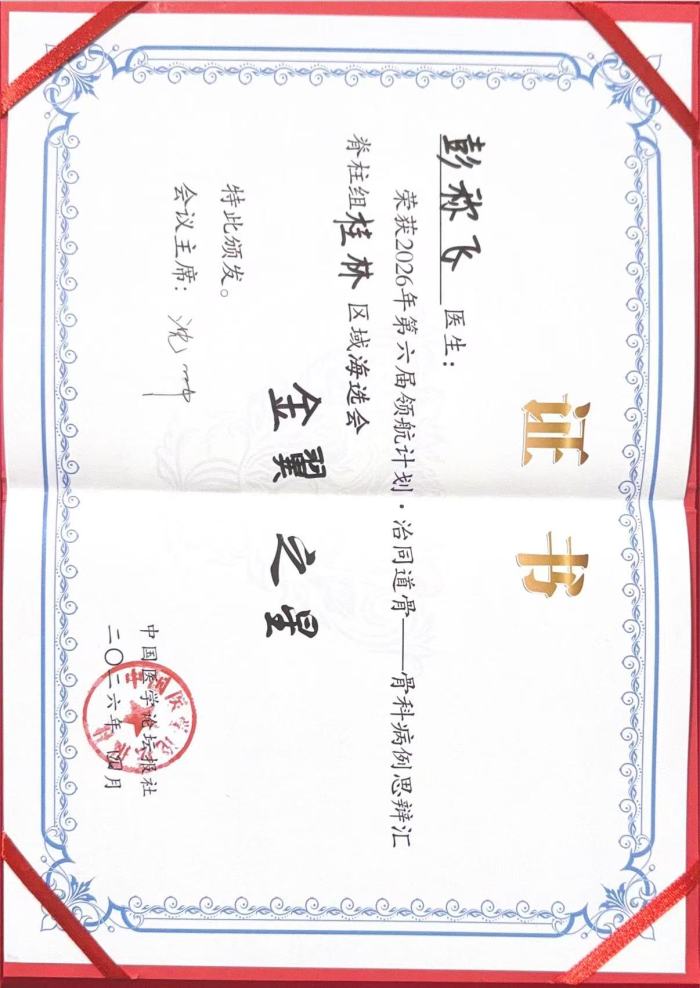 证书
彭称飞 医生：
荣获2026年第六届领航计划·治同道骨——骨科病例思辩汇
脊柱组桂林区域海选会
金翼之星
特此颁发。
会议主席：
中国医学论坛报社
二〇二六年 四月